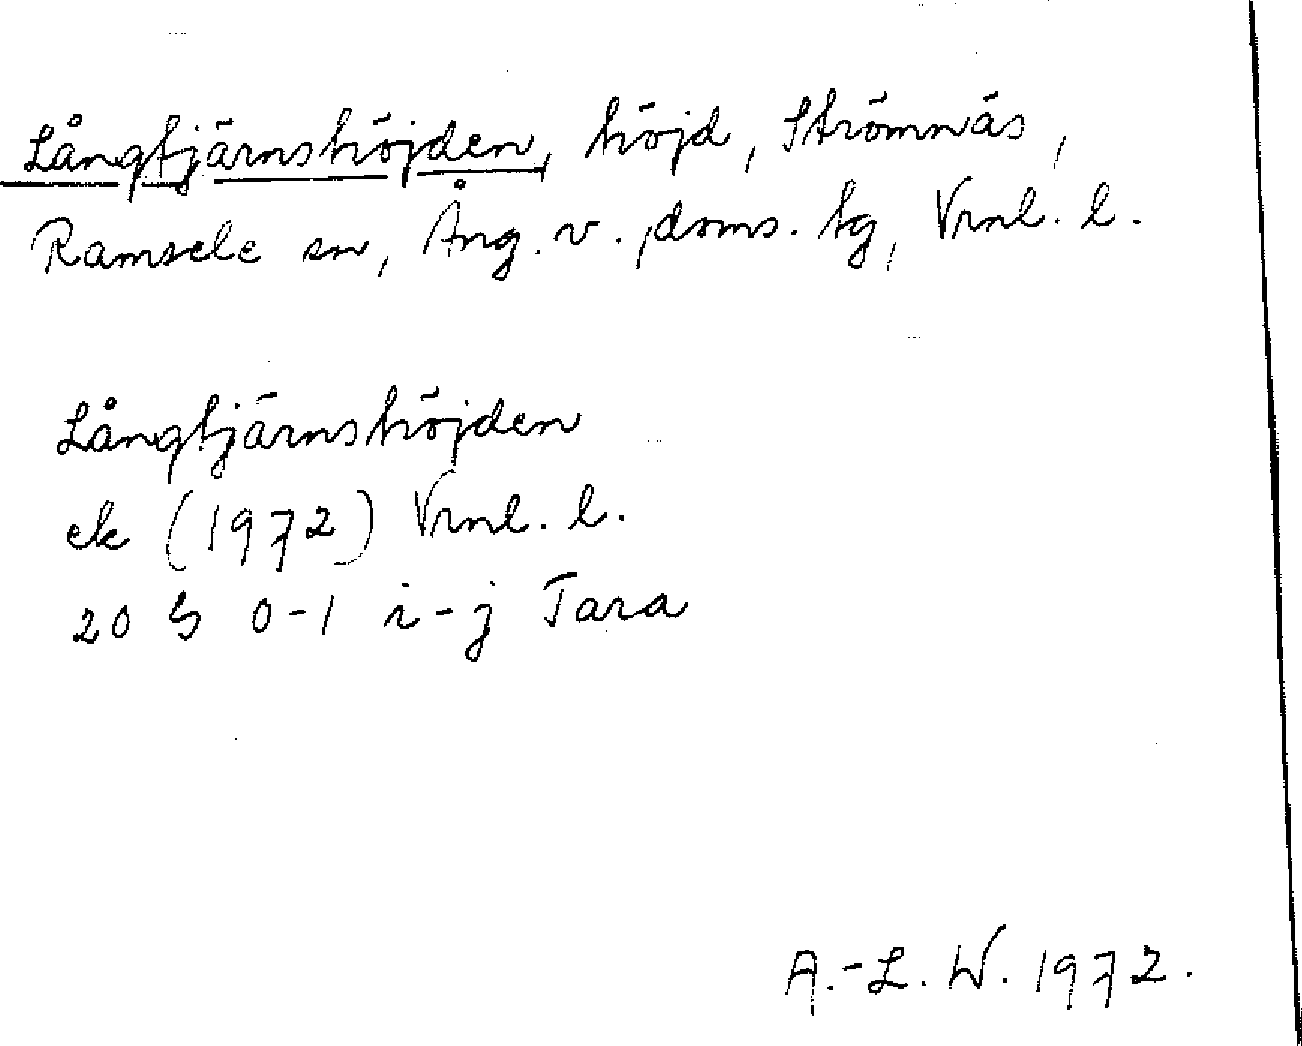 Långtjärnshöjden, höjd, Strömnäs,
Ramsele sn, Ång. v. doms. tg, Vrnl. l.
Långtjärnshöjden
ek (1972) Vrnl. l.
20 G 0-1 i-j Tara
A.-L. W. 1972.